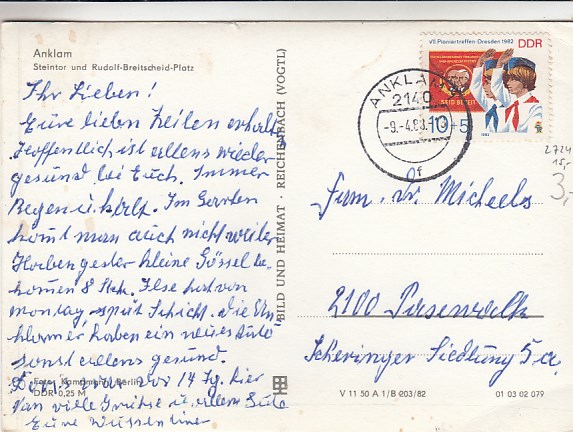 Anklam
Steintor und Rudolf-Breitscheid-Platz
Ihr Lieben!
Eure lieben Zeilen erhalten
Hoffentlich ist allens wieder
gesund bei Euch. Immer
Regen u. kalt. Im Garten
kommt man auch nicht weiter
Haben gester kleine Gössel be-
komen 8 Stck. Ilse hat von
montag spät Schicht. Die An
klamer haben ein neues Auto
sonst allens gesund.
war vor 14 Tg. hier
Van viele Grüße u. allem Gute
Eure
Foto: Berlin
DDR 0,25 M
BILD UND HEIMAT · REICHENBACH (VOGTL)
VII Pioniertreffen · Dresden 1982 DDR
SEID BEREIT
1982
ANKLAM
2140
-9.-4.83.10
f
10+5
2724
15,-
3,-
Fam. W. Micheels
2100 Pasewalk
Scheringer Siedlung 5a
V 11 50 A 1/B 203/82
01 03 02 079